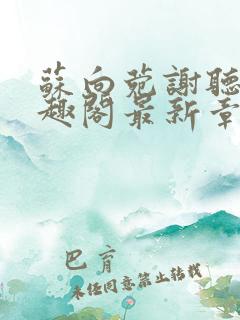 蘇向菀謝聽
趣閣最新章
巴育
未经同意禁止转载